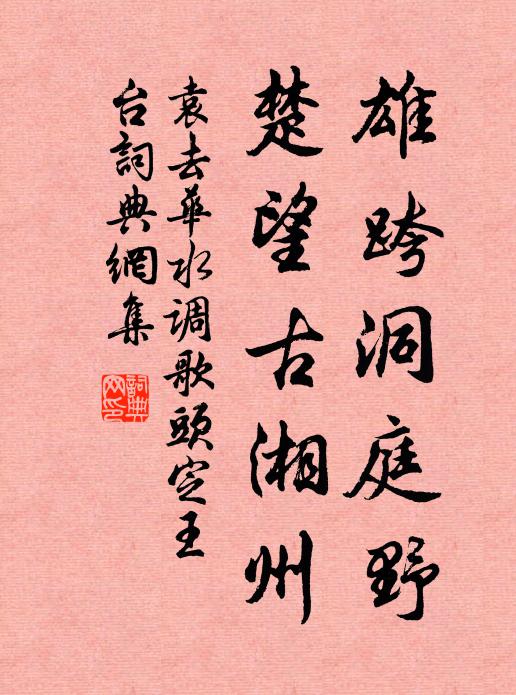 雄跨洞庭野
楚望古湘州
袁去華水调歌頭定王
台詞典網集
詞典網印